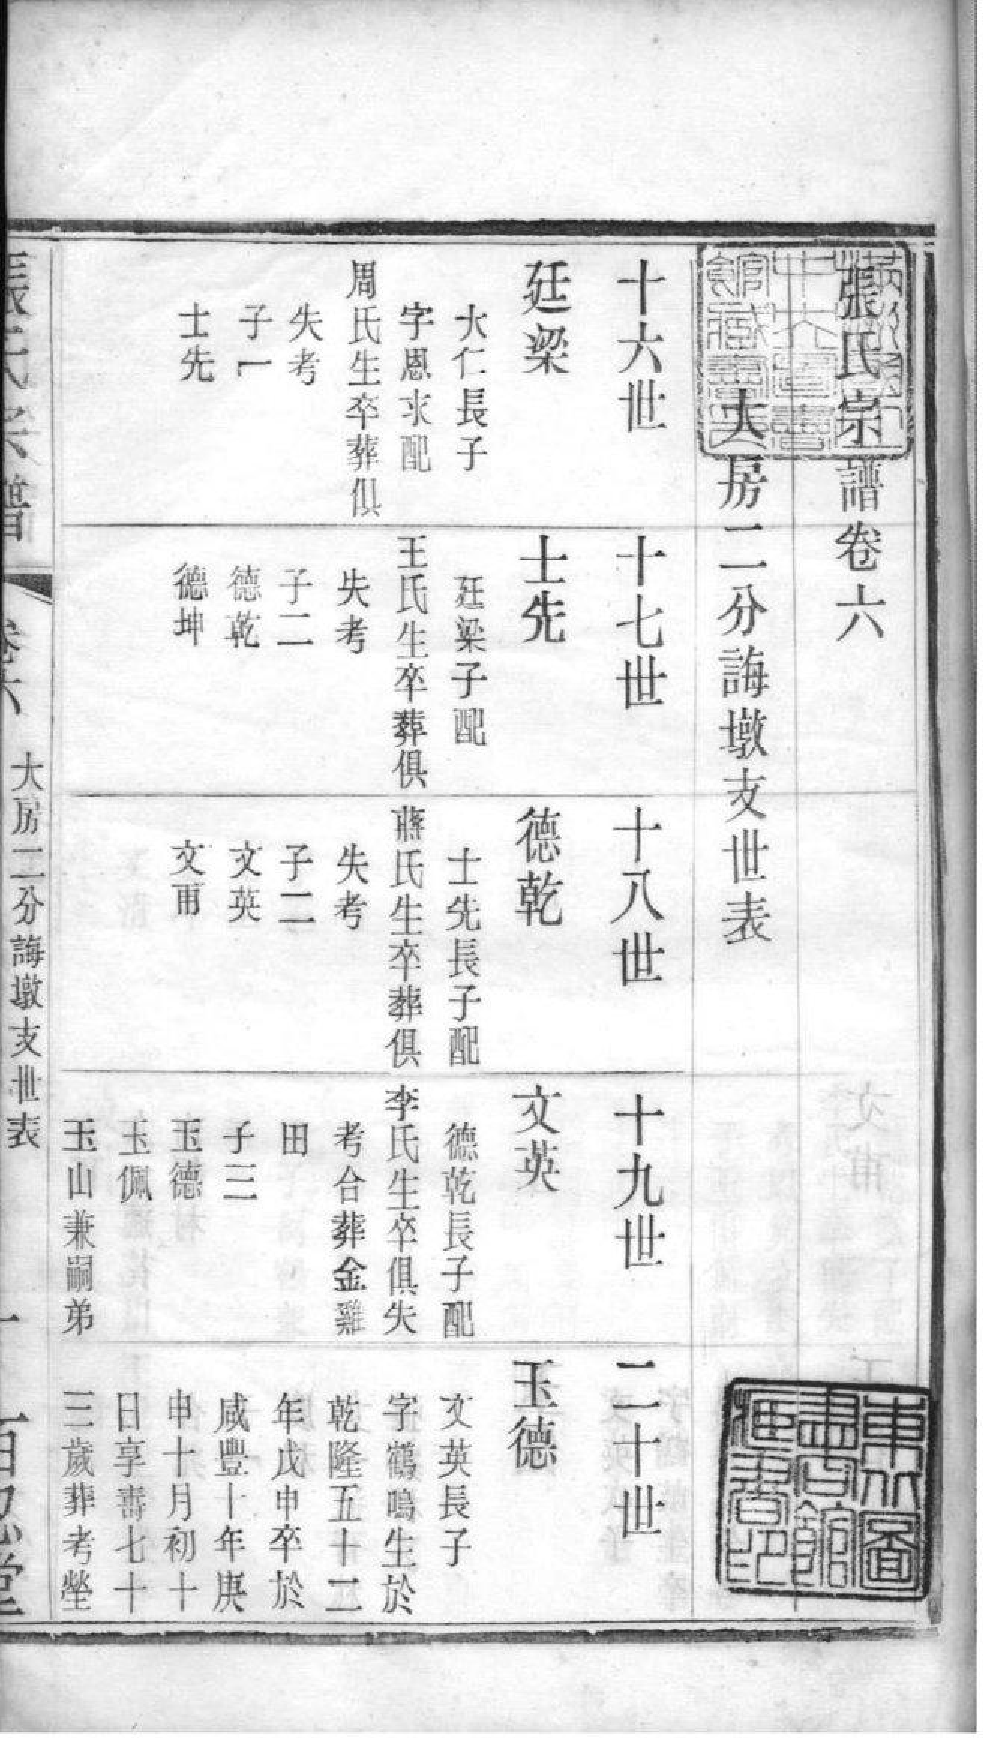 張氏宗譜卷六
大房二分誨墩支世表
十六世
廷梁
大仁長子
字恩求配
周氏生卒葬俱
失考
子一
士先
十七世
士先
廷梁子配
王氏生卒葬俱
失考
子二
德乾
德坤
十八世
德乾
士先長子配
蔣氏生卒葬俱
失考
子二
文英
文甫
十九世
文英
德乾長子配
李氏生卒俱失
考合葬金雞
田
子三
玉德
玉佩
玉山兼嗣弟
二十世
玉德
文英長子
字鶴鳴生於
乾隆五十二
年戊申卒於
咸豐十年庚
申十月初十
日享壽七十
三歲葬考塋
張氏宗譜
卷六
大房二分誨墩支世表
一
百忍堂
東北圖書館所藏善本